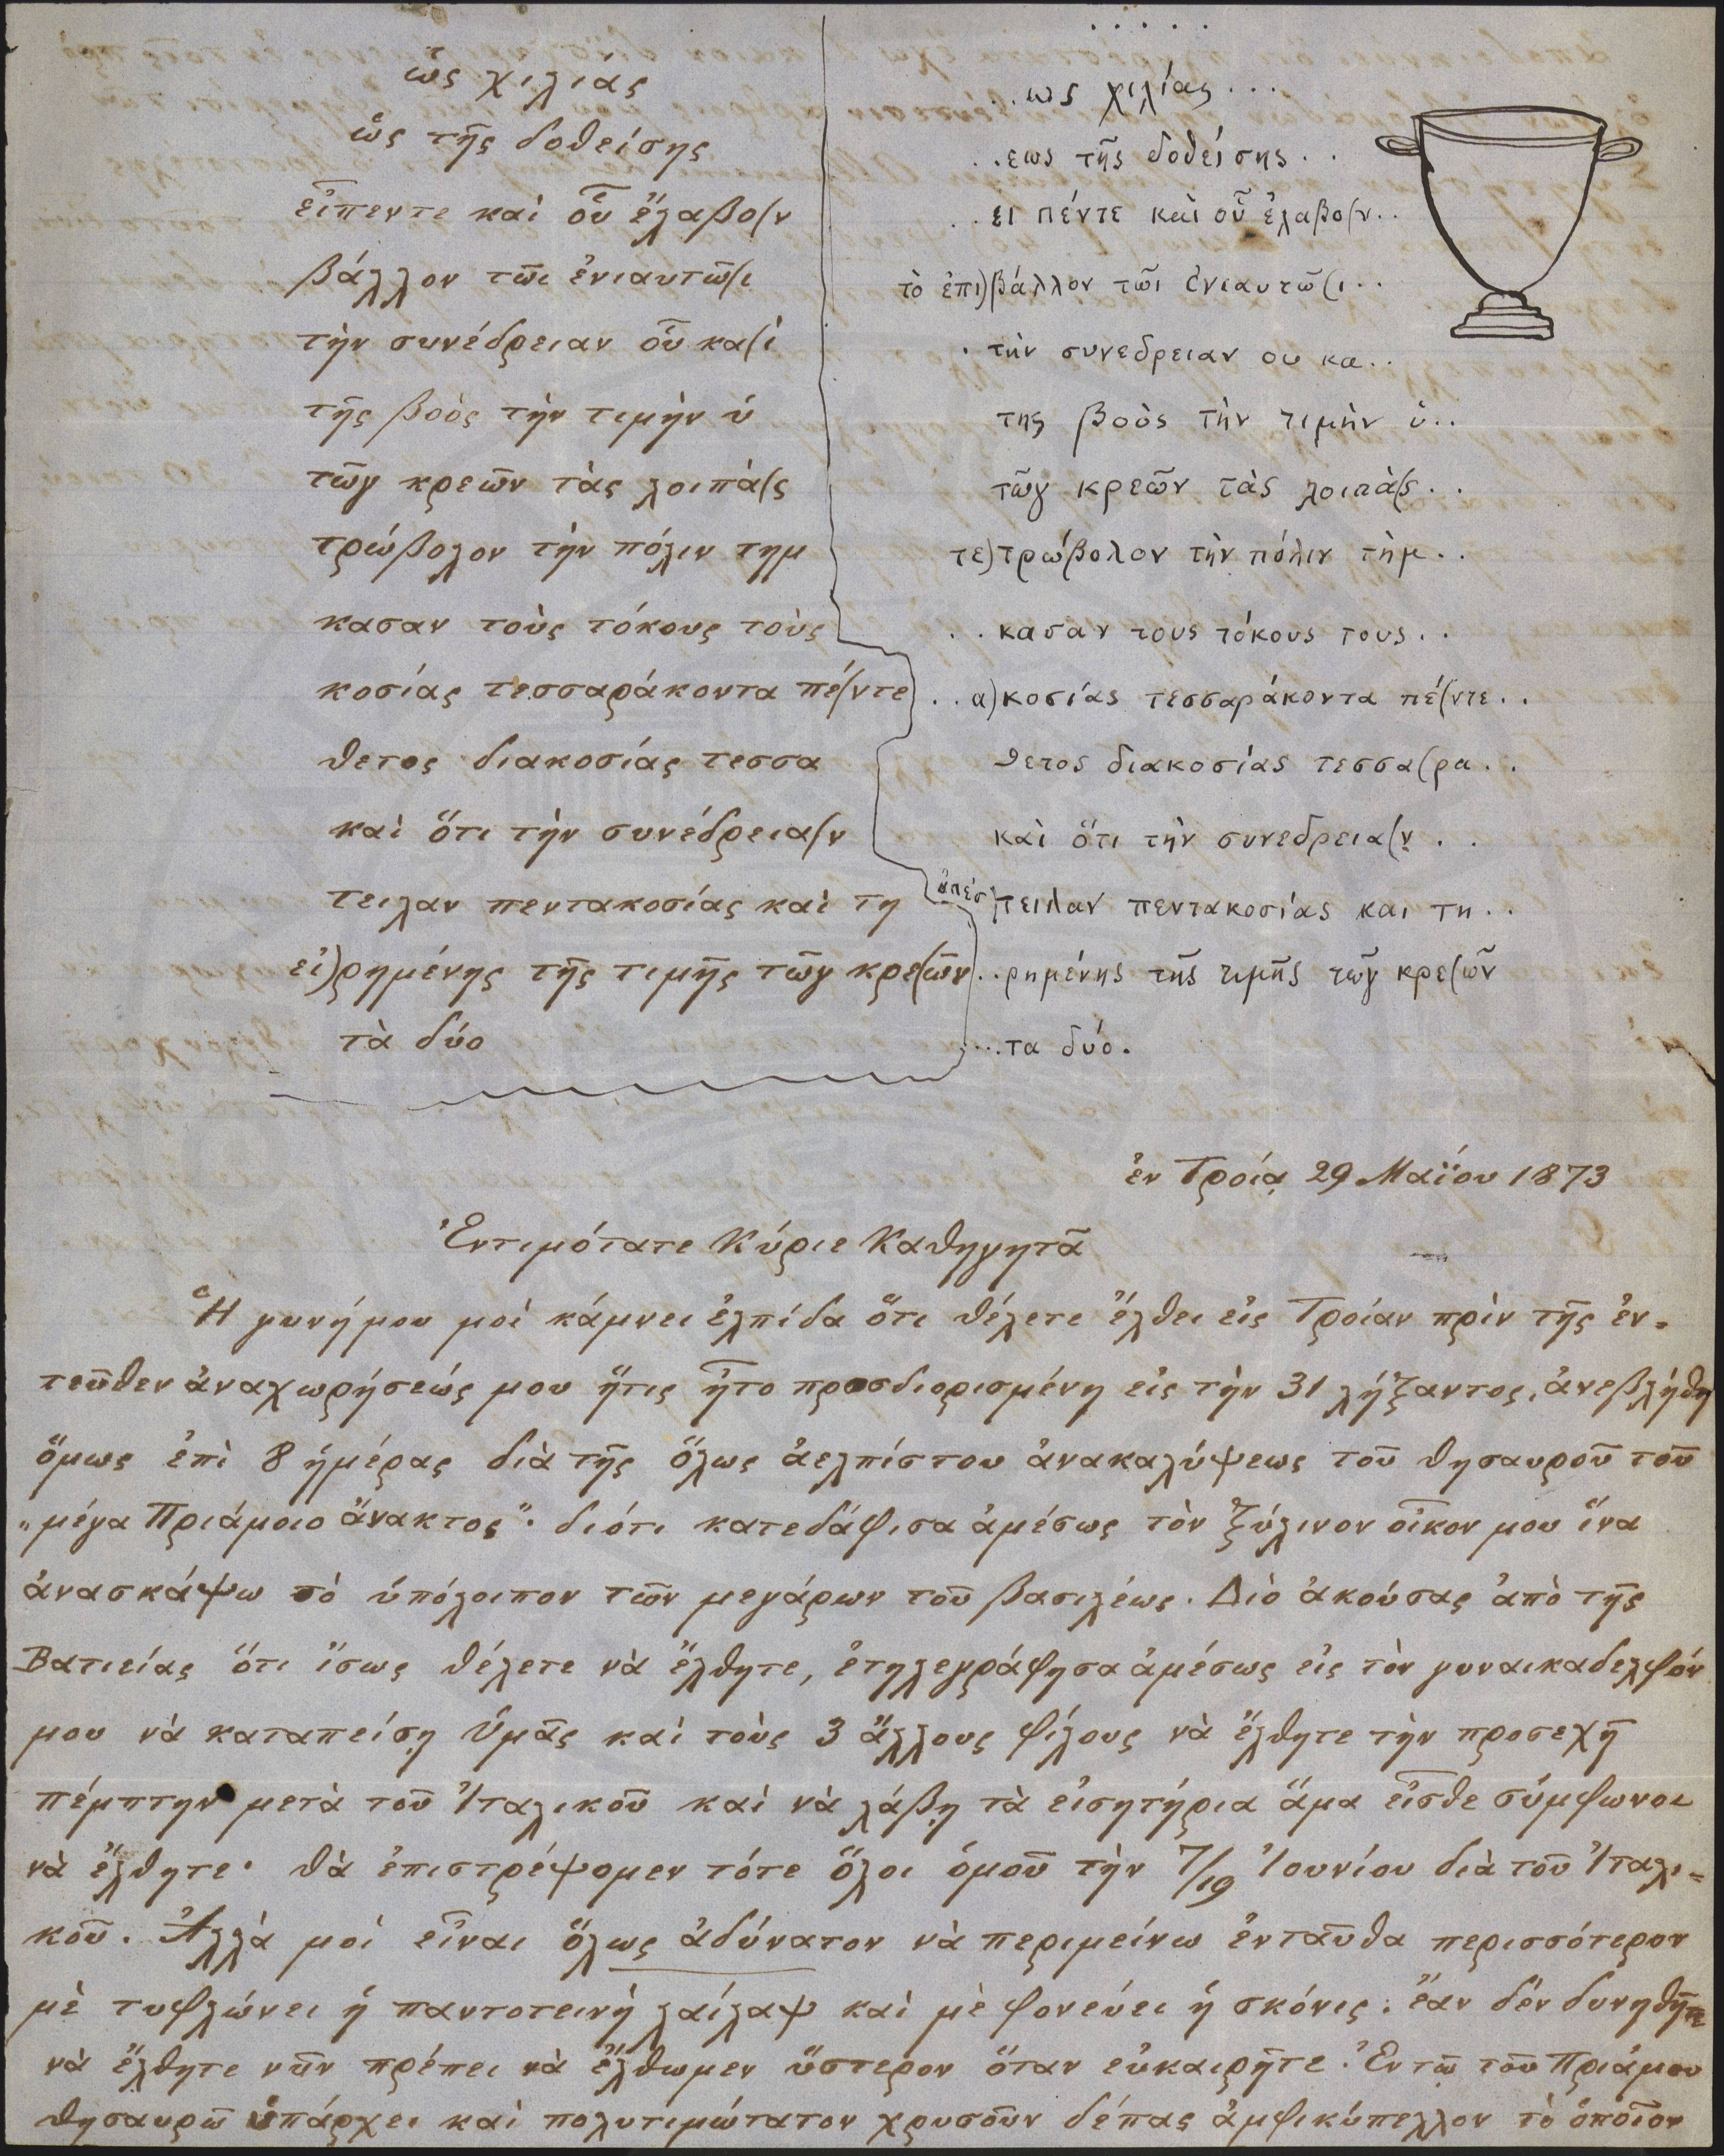 ὡς χιλιάς
ὡς τῆς δοθείσης
εἶπεντε καὶ οὗ ἔλαβο(ν
βάλλον τῶι ἐνιαυτῶ(ι
τὴν συνέδρειαν οὗ κα(ὶ
τῆς βοὸς τὴν τιμὴν ὑ
τῶγ κρεῶν τὰς λοιπὰ(ς
τρώβολον τὴν πόλιν τημ
κασαν τοὺς τόκους τοὺς
κοσίας τεσσαράκοντα πέ(ντε
θετος διακοσίας τεσσα
καὶ ὅτι τὴν συνέδρεια(ν
τειλαν πεντακοσίας καὶ τη
εἰ)ρημένης τῆς τιμῆς τῶγ κρε(ῶν
τὰ δύο
.....
..ως χιλίας...
..εως τῆς δοθείσης..
..ει πέντε καὶ οὗ ἔλαβο(ν..
τὸ ἐπι)βάλλον τῶι ἐνιαυτῶ(ι..
.τὴν συνεδρειαν ου κα..
της βοὸς τὴν τιμὴν ὑ..
τῶγ κρεῶν τὰς λοιπὰ(ς..
τε)τρώβολον τὴν πόλιν τὴμ..
..κασαν τους τόκους τους..
..α)κοσίας τεσσαράκοντα πέ(ντε..
θετος διακοσίας τεσσα(ρα..
καὶ ὅτι τὴν συνεδρεια(ν..
ἀπέσ)τειλαν πεντακοσίας και τη..
..ρημένης τῆς τιμῆς τῶγ κρε(ῶν
...τα δύο.
ἐν Τροίᾳ 29 Μαΐου 1873
Ἐντιμότατε Κύριε Καθηγητᾶ
Ἡ γυνή μου μοὶ κάμνει ἐλπίδα ὅτι θέλετε ἔλθει εἰς Τροίαν πρὶν τῆς ἐν=
τεῦθεν ἀναχωρήσεώς μου ἥτις ἦτο προσδιορισμένη εἰς τὴν 31 λήξαντος, ἀνεβλήθη
ὅμως ἐπὶ 8 ἡμέρας διὰ τῆς ὅλως ἀελπίστου ἀνακαλύψεως τοῦ θησαυροῦ τοῦ
„μέγα Πριάμοιο ἄνακτος"· διότι κατεδάφισα ἀμέσως τὸν ξύλινον οἶκον μου ἵνα
ἀνασκάψω τὸ ὑπόλοιπον τῶν μεγάρων τοῦ βασιλέως. Διὸ ἀκούσας ἀπὸ τῆς
Βατιείας ὅτι ἴσως θέλετε νὰ ἔλθητε, ἐτηλεγράφησα ἀμέσως εἰς τὸν γυναικαδελφόν
μου νὰ καταπείσῃ Ὑμᾶς καὶ τοὺς 3 ἄλλους φίλους νὰ ἔλθητε τὴν προσεχῆ
πέμπτην μετὰ τοῦ Ἰταλικοῦ καὶ νὰ λάβῃ τὰ εἰσητήρια ἅμα εἶσθε σύμφωνοι
νὰ ἔλθητε· θὰ ἐπιστρέψομεν τότε ὅλοι ὁμοῦ τὴν 7/19 Ἰουνίου διὰ τοῦ Ἰταλι=
κοῦ. Ἀλλὰ μοὶ εἶναι ὅλως ἀδύνατον νὰ περιμείνω ἐνταῦθα περισσότερον
μὲ τυφλώνει ἡ παντοτεινὴ λαίλαψ καὶ μὲ φονεύει ἡ σκόνις· ἔαν δὲν δυνηθῆτε
νὰ ἔλθητε νῦν πρέπει νὰ ἔλθωμεν ὕστερον ὅταν εὐκαιρῆτε. Ἐν τῷ τοῦ Πριάμου
θησαυρῷ ὑπάρχει καὶ πολυτιμώτατον χρυσοῦν δέπας ἀμφικύπελλον τὸ ὁποῖον